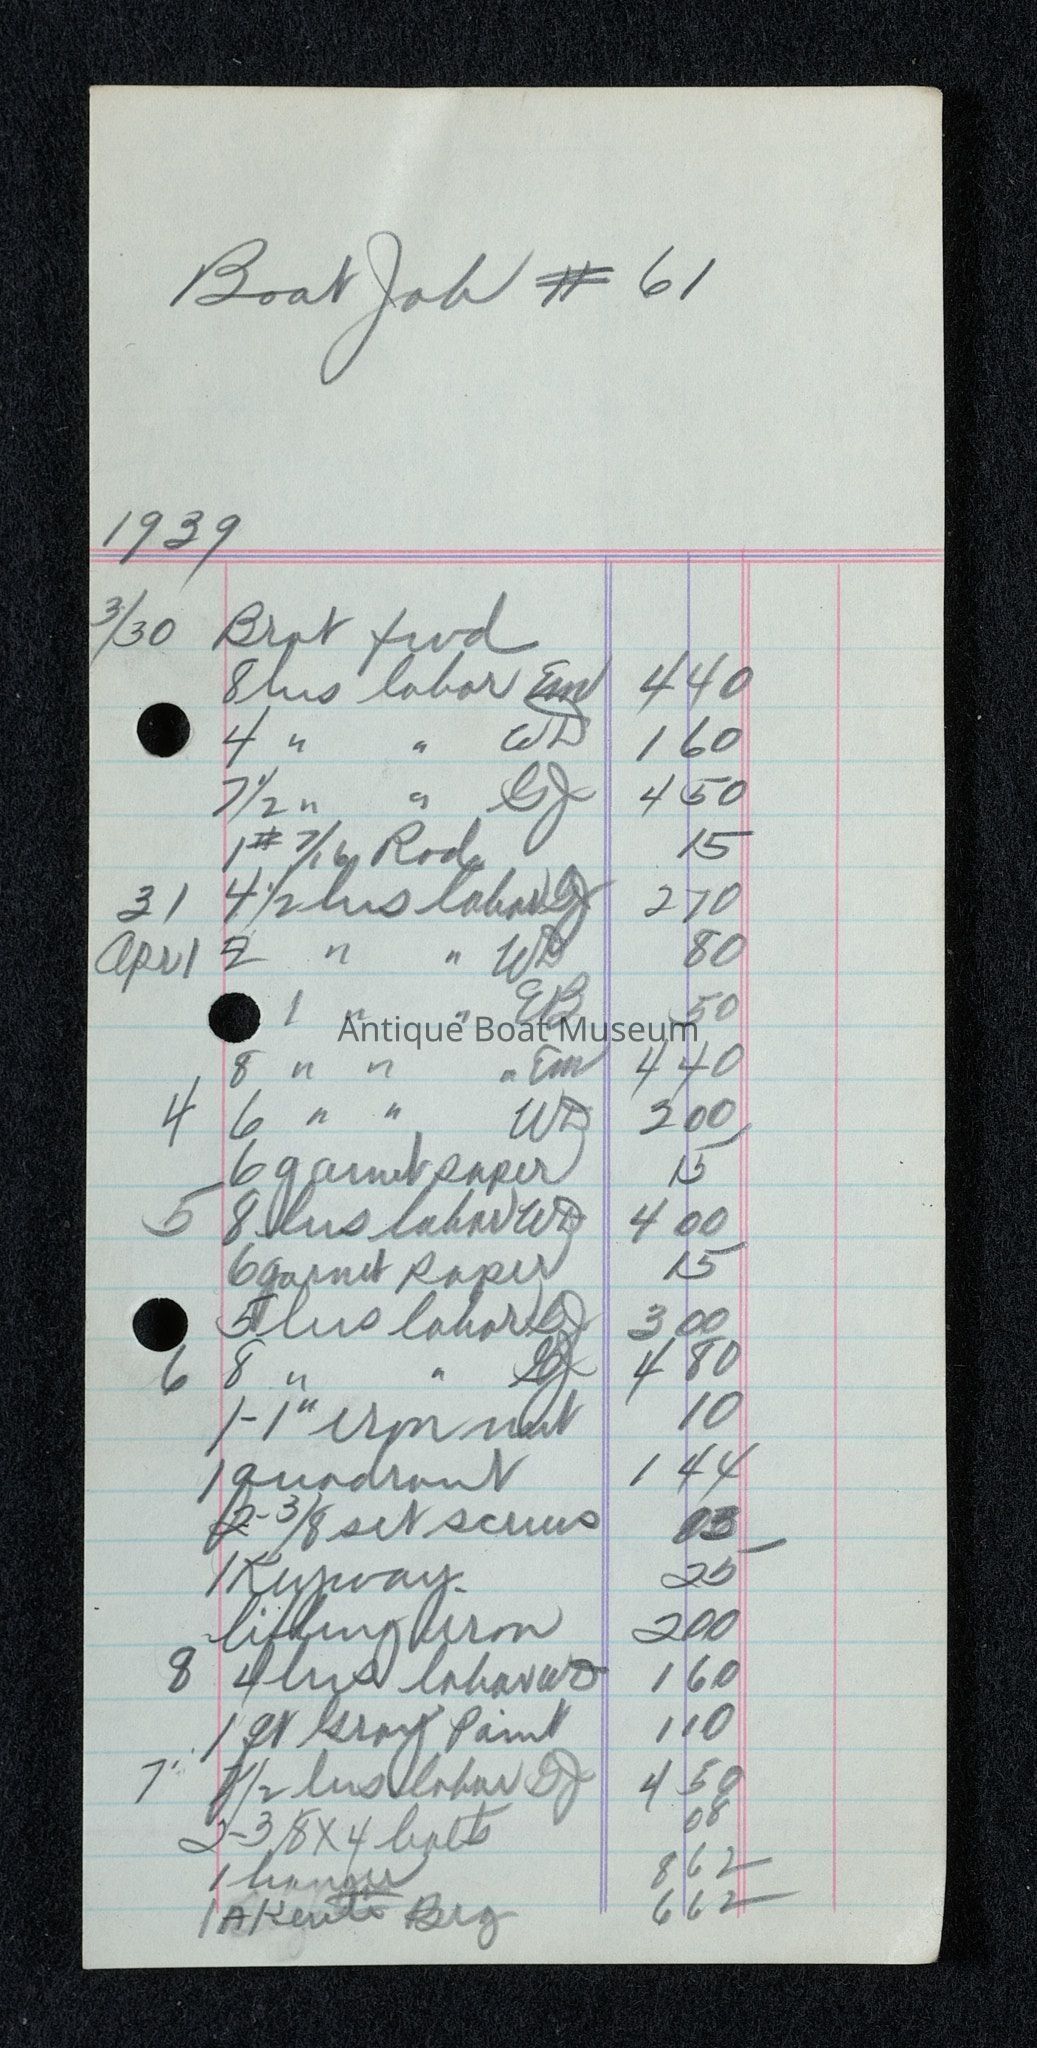 Boat Job # 61
1939
3/30 Brot fwd
8 hrs labor Em 4 40
4 " " WD 1 60
7 1/2 " " GJ 4 50
1# 7/16 Rod 15
31 4 1/2 hrs labor GJ 2 70
April 2 " " WD 80
1 " " EB 50
Antique Boat Museum
8 " " " Em 4 40
4 6 " " WD 3 00
6 garnet paper 15
5 8 hrs labor WD 4 00
6 garnet paper 15
5 hrs labor GJ 3 00
6 8 " " GJ 4 80
1-1" iron nut 10
1 quadrant 1 44
2-3/8 set screws 03
1 Keyway 25
lifting iron 2 00
8 4 hrs labor WD 1 60
1 qt Gray Paint 1 10
7 7 1/2 hrs labor GJ 4 50
2-3/8 X 4 bolts 08
1 hanger 8 62
1 Brg 6 62